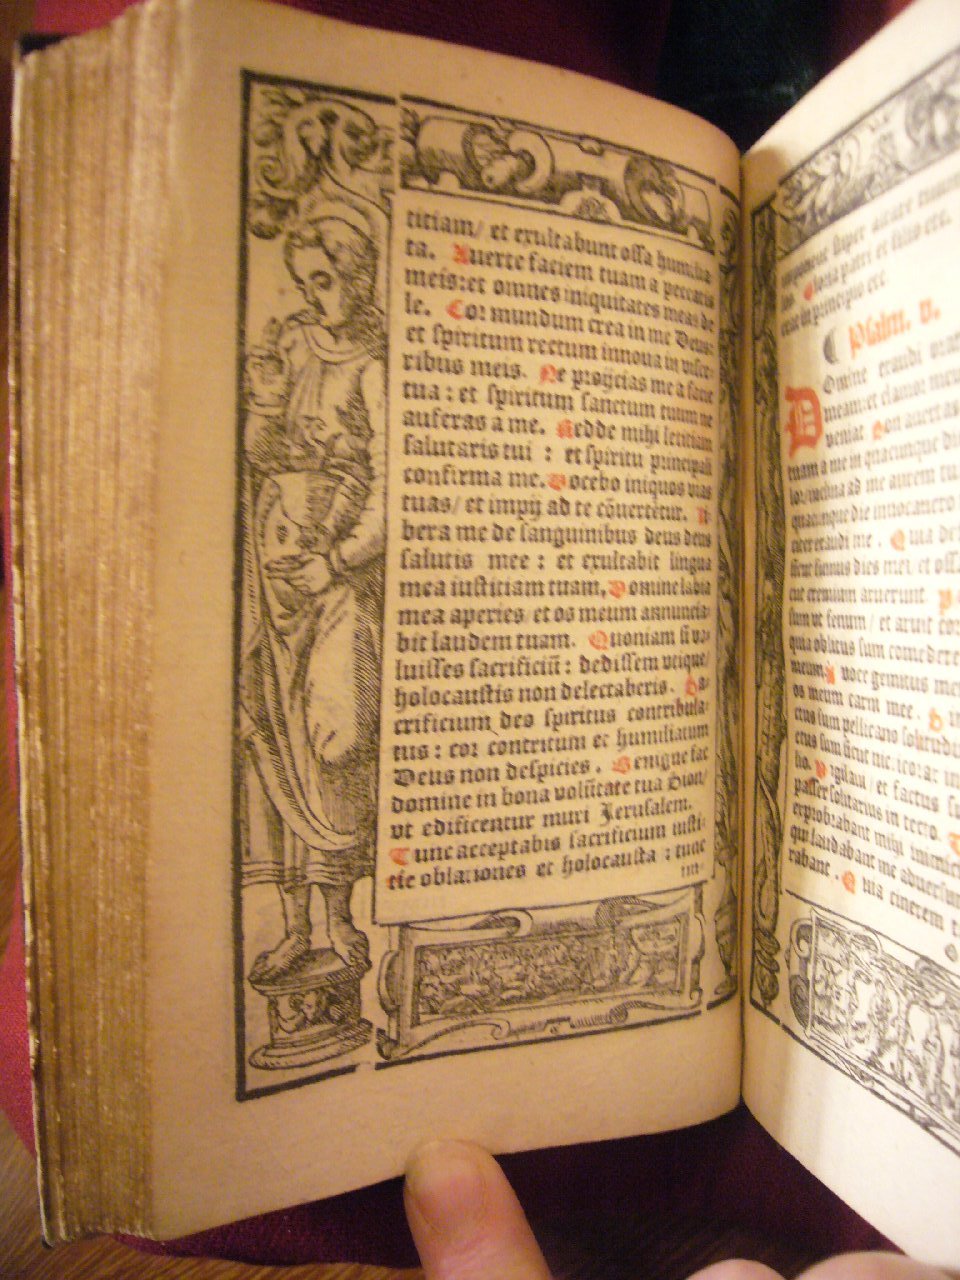 titiam/ et exultabunt ossa humilia
ta. Auerte faciem tuam a peccatis
meis: et omnes iniquitates meas de
le. Cor mundum crea in me Deus:
et spiritum rectum innoua in visce
ribus meis. Ne proijcias me a facie
tua : et spiritum sanctum tuum ne
auferas a me. Redde mihi letitiam
salutaris tui : et spiritu principali
confirma me. Docebo iniquos vias
tuas/ et impij ad te cõuertẽtur. Li
bera me de sanguinibus deus deus
salutis mee : et exultabit lingua
mea iustitiam tuam. Domine labia
mea aperies : et os meum annuncia
bit laudem tuam. Quoniam si vo
luisses sacrificiũ : dedissem vtique/
holocaustis non delectaberis. Sa
crificium deo spiritus contribula
tus : cor contritum et humiliatum
Deus non despicies. Benigne fac
domine in bona volũtate tua Sion/
vt edificentur muri Jerusalem.
Tunc acceptabis sacrificium iusti
cie oblationes et holocausta : tunc
im
imponent super altare
Gloria patri et filio etc.
erat in principio etc.
Psalm. v.
Domine exaudi
meam: et clamor meus
veniat Non auertas
tuam a me in quacunque die
lor/ inclina ad me aurem tu
quacunque die inuocauero
citer exaudi me . Quia de
dies mei/ et ossa
cut cremium aruerunt.
sum vt fenum/ et aruit cor
quia oblitus sum comedere
meum. A voce gemitus mei
os meum carni mee. Si
ctus sum pellicano solitudi
ctus sum
lio. Vigilaui/ et factus su
passer solitarius in tecto.
exprobrabant mihi inimici
qui laudabant me aduersum
rabant . Quia cinerem